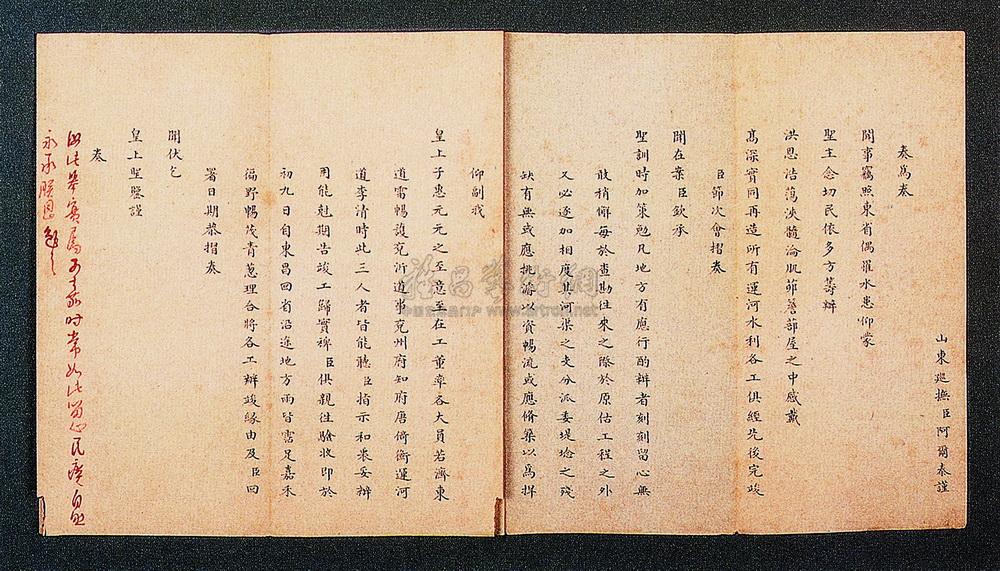 山東巡撫臣阿爾泰謹
奏為奏
聞事竊照東省偶罹水患仰蒙
聖主念切民依多方籌辦
洪恩浩蕩浹髓淪肌蔀簷蔀屋之中感戴
高深實同再造所有運河水利各工俱經先後完竣
臣節次會摺奏
聞在案臣欽承
聖訓時加策勉凡地方有應行酌辦者刻刻留心無
敢稍懈每於查勘往來之際於原估工程之外
又必逐加相度其河渠之支分派委堤埝之殘
缺有無或應挑濬以資暢流或應脩築以為捍
仰副我
皇上子惠元元之至意至在工董率各大員若濟東
道雷暢護兗沂道事兗州府知府唐倚衡運河
道李清時此三人者皆能聽臣指示和衷妥辦
用能剋期告竣工歸實裨臣俱親往驗收即於
初九日自東昌回省沿途地方雨皆霑足嘉禾
徧野暢茂青蔥理合將各工辦竣緣由及臣回
署日期恭摺奏
聞伏乞
皇上聖鑒謹
奏
此舉實屬可嘉時常如此留心民瘼自
永承朕恩勉之